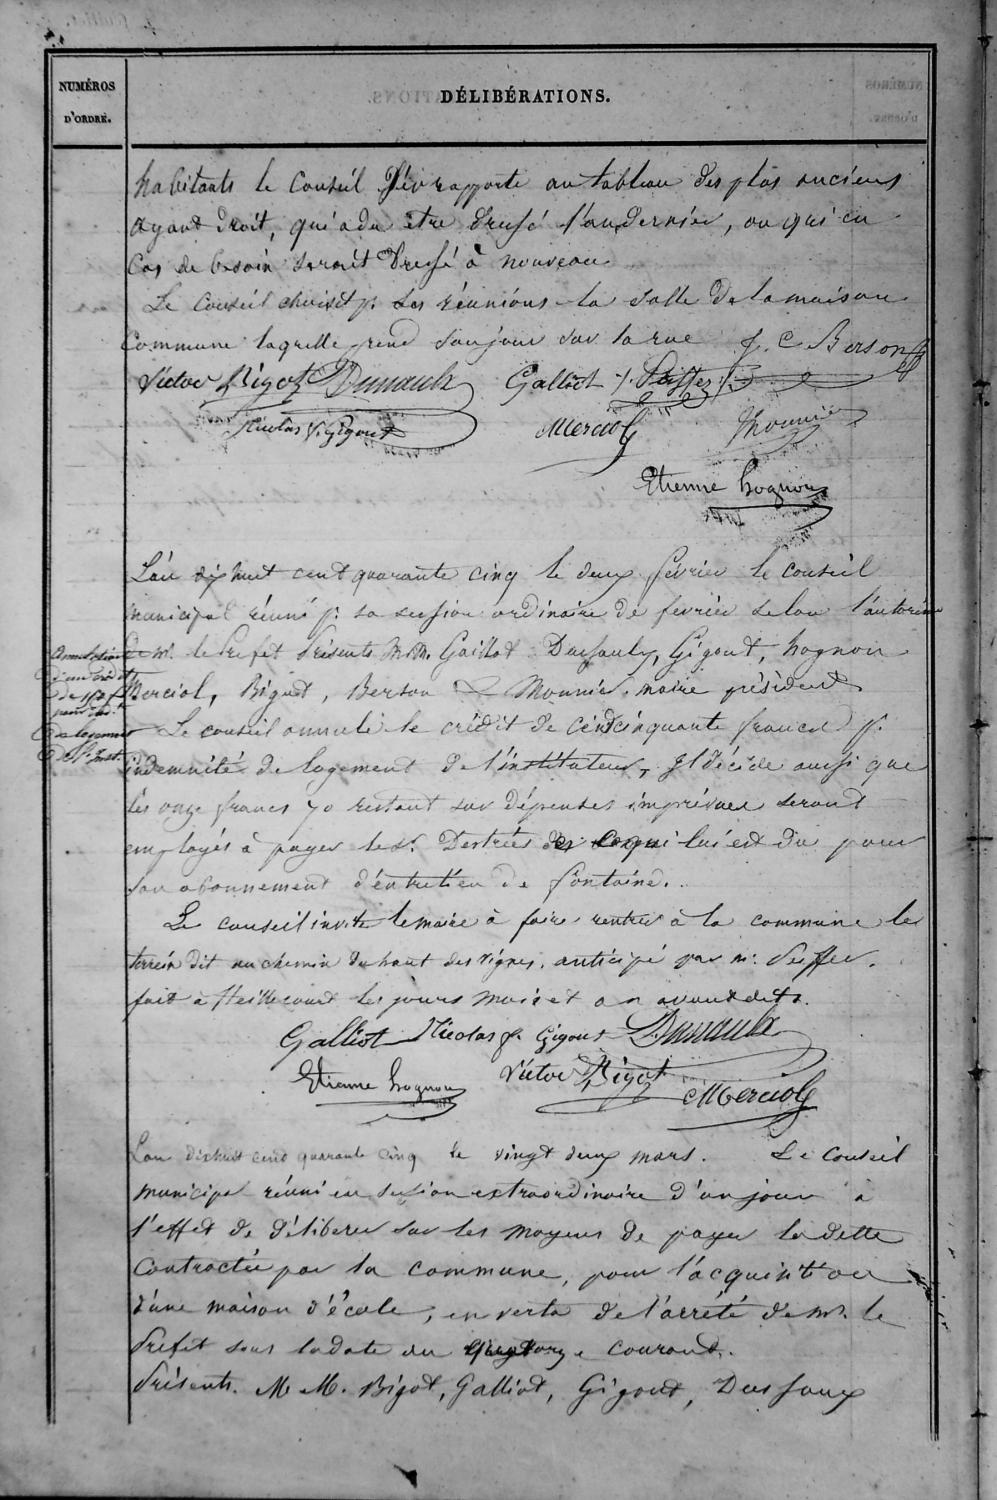 NUMÉROS
D'ORDRE.
DÉLIBÉRATIONS.
habitants le Conseil s'en rapporte au tableau des plus anciens
ayant droit, qui a du être dressé l'an dernier, ou qui en
Cas de besoin serait dressé à nouveau
Le Conseil choisit pr. ses réunions la salle de la maison
Commune laquelle prend son jour sur la rue J. C Berson
Victor Bigot Galliot
Nicolas f. Gigout Merciol Mounier
Etienne hognon
L'an dixhuit cent quarante cinq le deux février le conseil
municipal réuni pr. sa session ordinaire de février selon
de mr. le Prefet Présents M.M. Galliot Dussaulx, Gigout, hognon
Merciol, Bigot, Berson & Mounier, maire président
Le conseil annule le crédit de cent cinquante francs pr.
indemnité de logement de l'instituteur, Il décide aussi que
les onze francs 70 restant sur dépenses imprévues seront
employés à payer le Sr. ce qui lui est du pour
son abonnement d'entretien de fontaine.
Le conseil invite le maire à faire rentrer à la commune le
terrein dit au chemin du haut des vignes, anticipé par mr.
fait à Heillecourt les jours mois et an avant dits.
Galliot Nicolas f. Gigout
Etienne hognon Victor Bigot Merciol
L'an dixhuit cent quarante cinq le vingt deux mars. Le Conseil
municipal réuni en session extraordinaire d'un jour à
l'effet de délibérer sur les moyens de payer la dette
Contractée par la commune, pour l'acquisition
d'une maison d'école, en vertu de l'arrêté de mr. le
Prefet sous la date du courant.
Présents. M M. Bigot, Galliot, Gigout, Dussaux